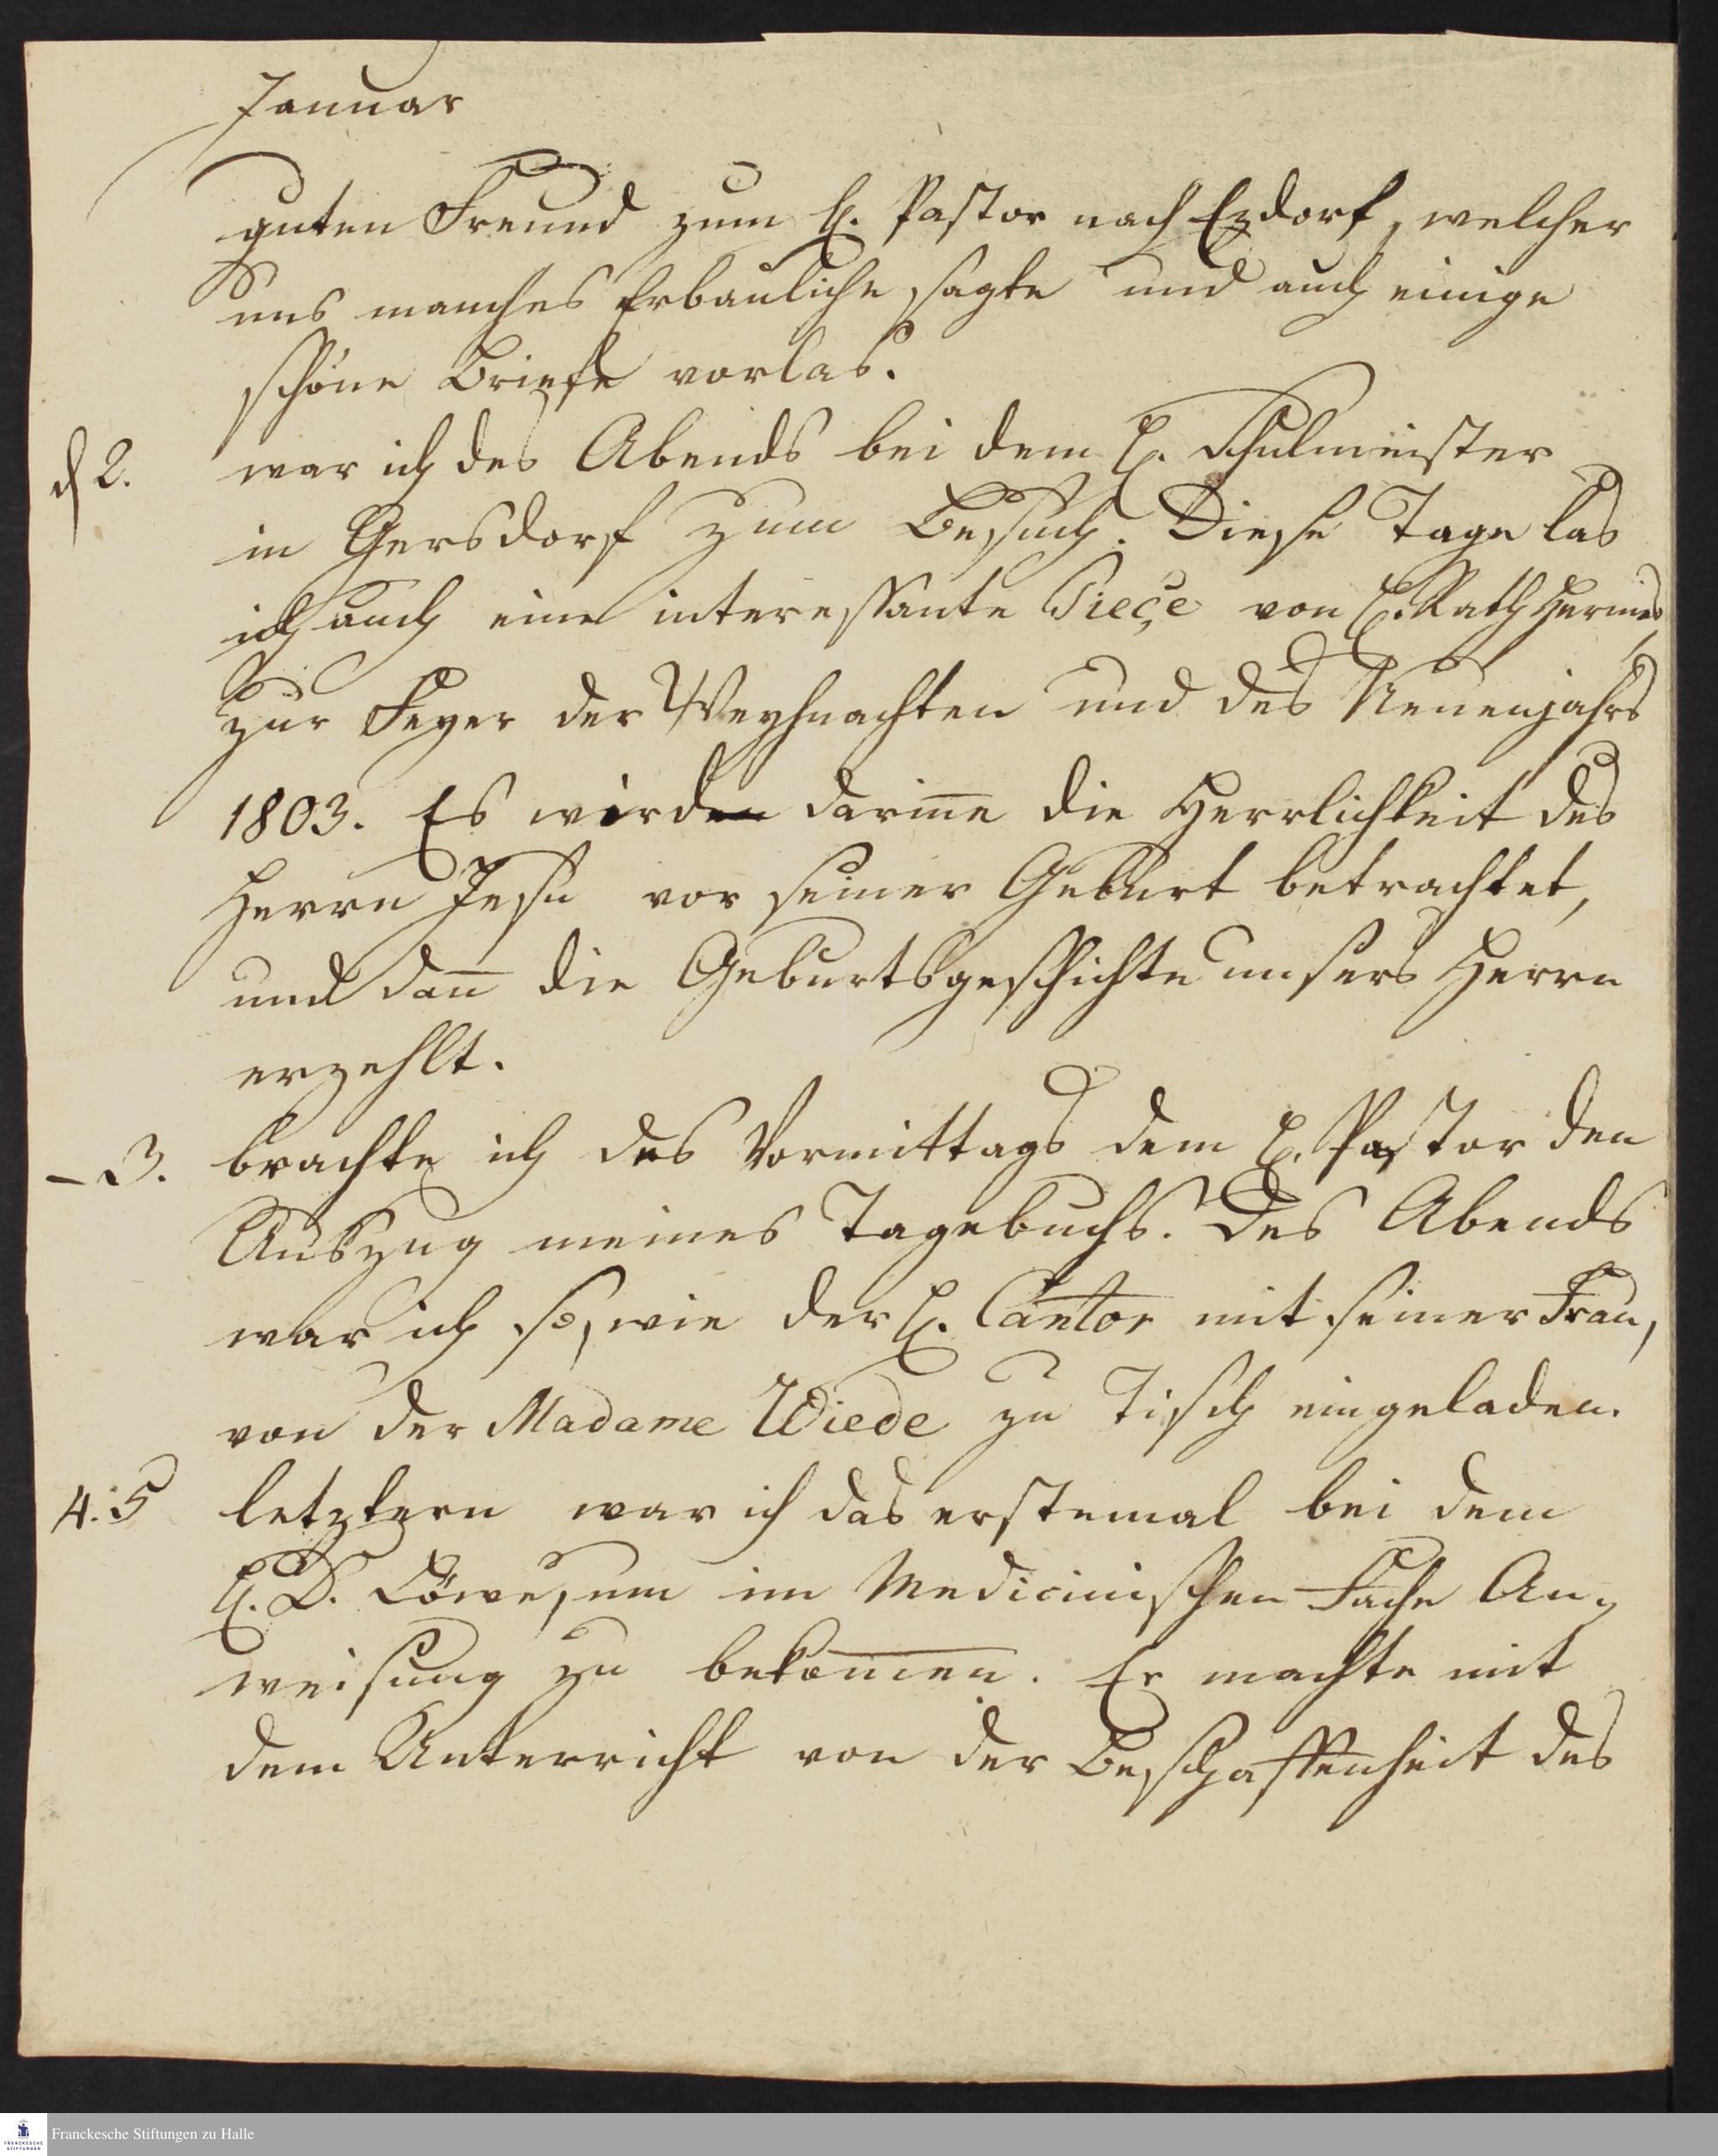 Januar
guten Freund zum H. Pastor nach Ezdorf, welcher
uns manches Erbauliche sagte und auch einige
schöne Briefe vorlas.
d 2. war ich des Abends bei dem H. Schulmeister
in Gersdorf zum Besuch. Diese Tage las
ich auch eine interessante Pieçe von H. Rath Hermes,
zur Feyer der Weyhnachten und des Neuenjahrs
1803. Es wird darin̅e die Herrlichkeit des
Herrn Jesu vor seiner Geburt betrachtet,
und dan̅ die Geburtsgeschichte unsers Herrn
erzehlt.
– 3. brachte ich des Vormittags dem H. Pastor den
Auszug meines Tagebuchs. Des Abends
war ich so, wie der H. Cantor mit seiner Frau,
von der Madame Wiede zu Tisch eingeladen.
4. 5 letztern war ich das erstemal bei dem
H. D. Löwe, um im Medicinischen Fache An-
weisung zu bekom̅en. Er machte mit
dem Unterricht von der Beschaffenheit des
Franckesche Stiftungen zu Halle
FRANCKESCHE
STIFTUNGEN